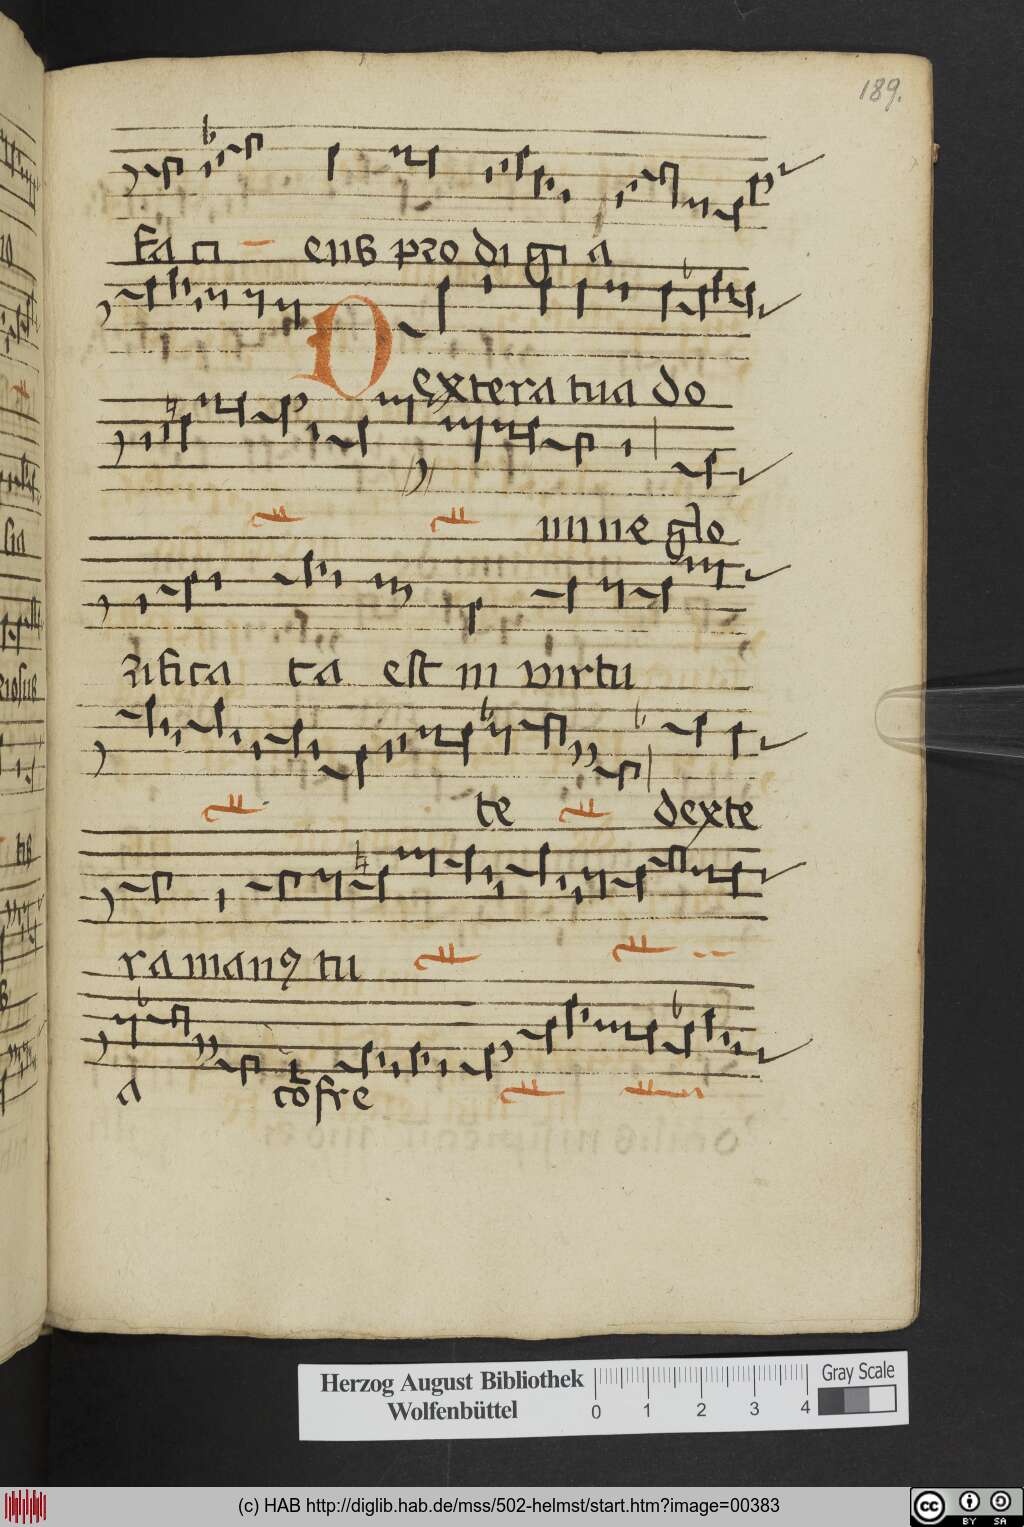 189.
Fa ci enß pro di gi a
Dextera tua do
mine glo
rifica ta est in virtu
te dexte
ra manꝰ tu
a cōfre
Herzog August Bibliothek
Wolfenbüttel
0 1 2 3 4
Gray Scale
(c) HAB http://diglib.hab.de/mss/502-helmst/start.htm?image=00383
cc BY SA